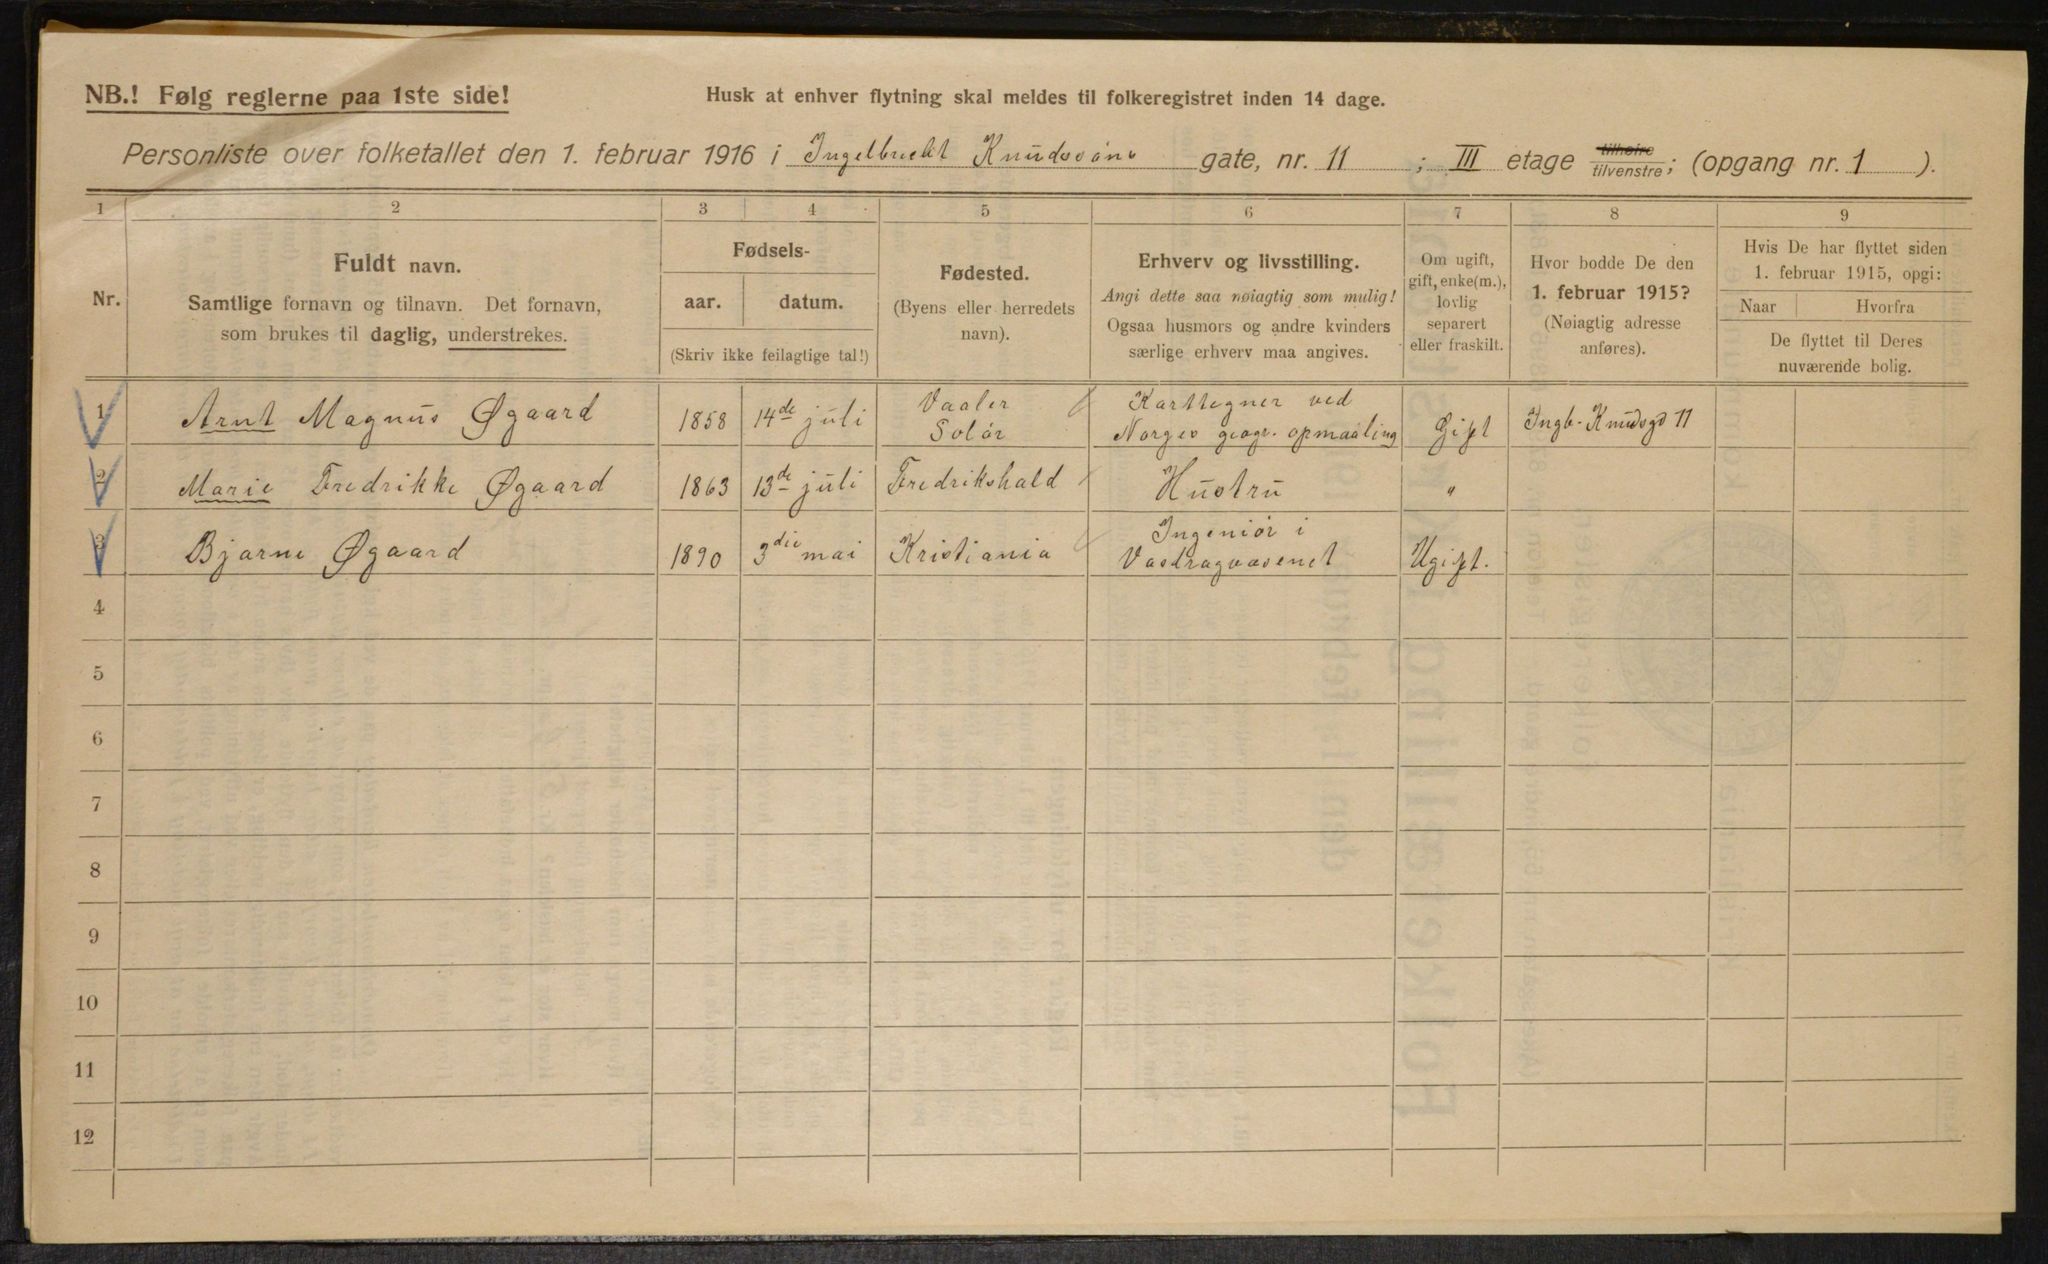 NB.! Følg reglerne paa 1ste side!
Husk at enhver flytning skal meldes til folkeregistret inden 14 dage.
Personliste over folketallet den 1. februar 1916 i Ingelbrecht Knudssøns gate, nr. 11 ; III etage tilhøire tilvenstre; (opgang nr. 1 ).
1 2 3 4 5 6 7 8 9
Nr.
Fuldt navn.
Samtlige fornavn og tilnavn. Det fornavn,
som brukes til daglig, understrekes.
Fødsels-
aar. datum.
(Skriv ikke feilagtige tal!)
Fødested.
(Byens eller herredets
navn).
Erhverv og livsstilling.
Angi dette saa nøiagtig som mulig!
Ogsaa husmors og andre kvinders
særlige erhverv maa angives.
Om ugift,
gift, enke(m.),
lovlig
separert
eller fraskilt.
Hvor bodde De den
1. februar 1915?
(Nøiagtig adresse
anføres).
Hvis De har flyttet siden
1. februar 1915, opgi:
Naar Hvorfra
De flyttet til Deres
nuværende bolig.
1 Arnt Magnus Øgaard 1858 14de juli Vaaler Solør Karttegner ved Norges geogr. opmaaling Gift Ingb. Knudsgd 11
2 Marie Fredrikke Øgaard 1863 13de juli Fredrikshald Hustru "
3 Bjarne Øgaard 1890 3die mai Kristiania Ingeniør i Vasdragvæsenet Ugift.
4
5
6
7
8
9
10
11
12